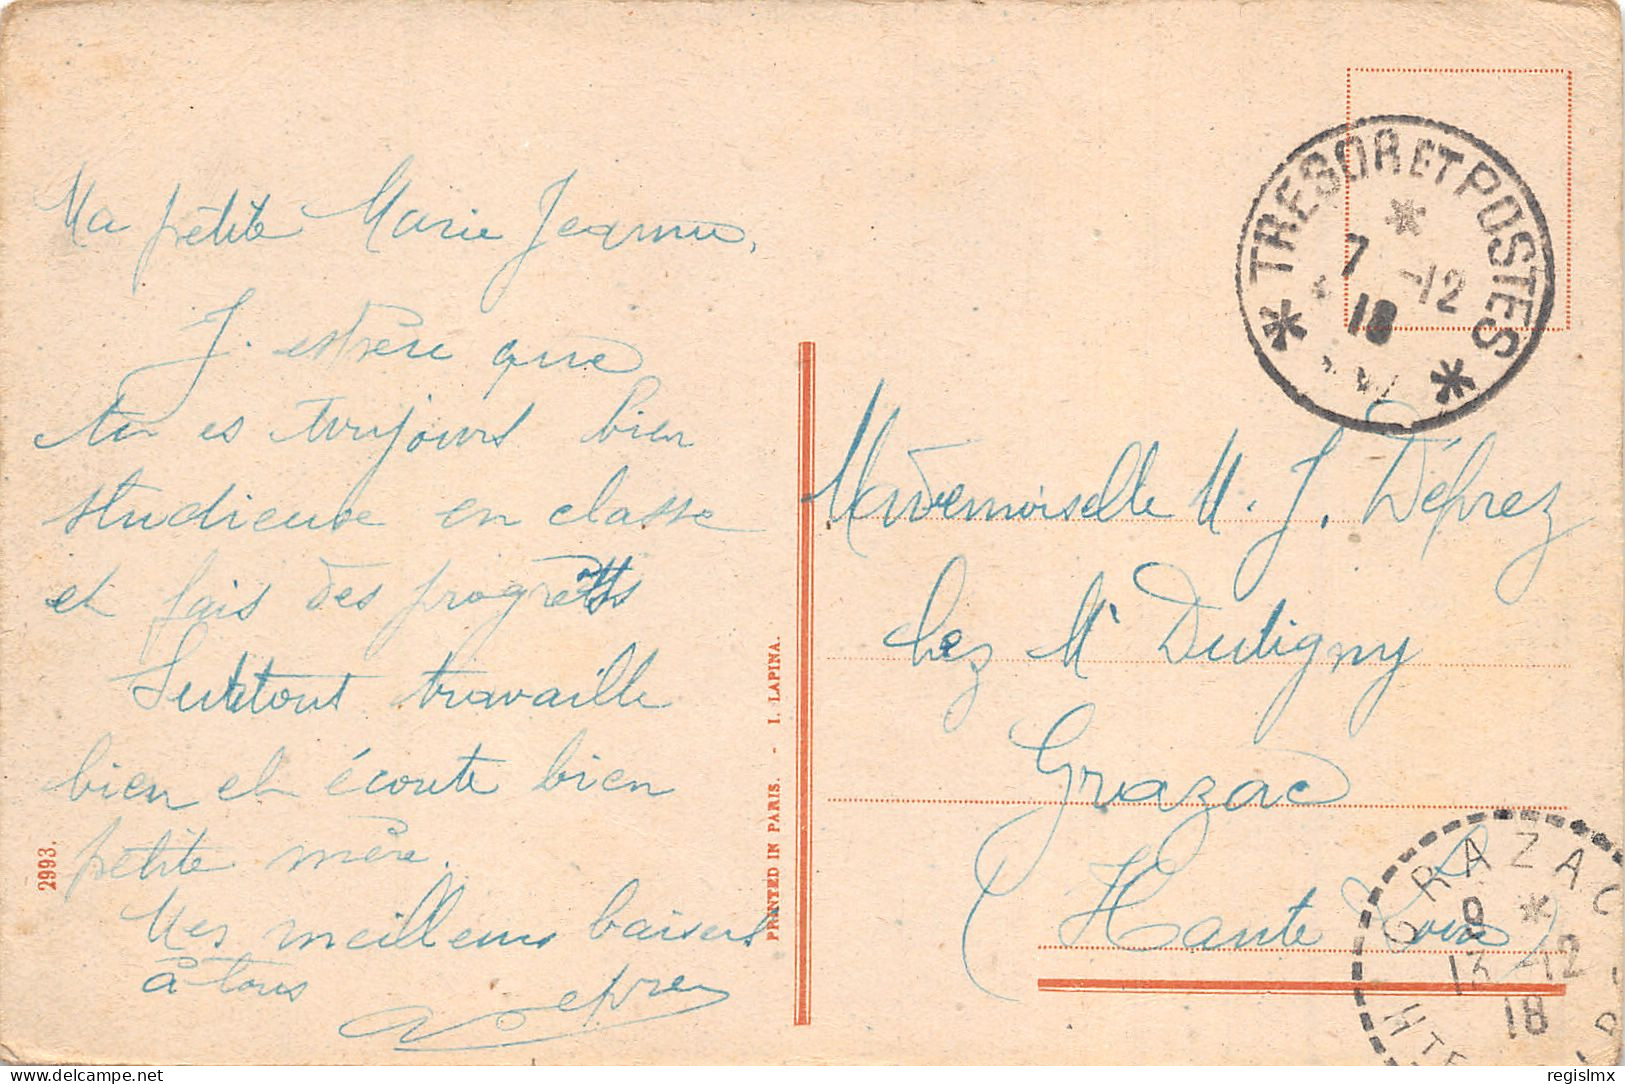 Ma petite Marie Jeanne,
J'espère que
tu es toujours bien
studieuse en classe
et fais des progrès
Surtout travaille
bien et écoute bien
petite mère.
Mes meilleurs baisers
à tous
Deprez
2993.
PRINTED IN PARIS. - I. LAPINA.
TRESOR ET POSTES
7 -12
18
Mademoiselle M. J. Déprez
chez Mr Dutigny
Grazac
(Haute Loire)
GRAZAC
9 *
13 -12
18
HTE
delcampe.net
regislmx